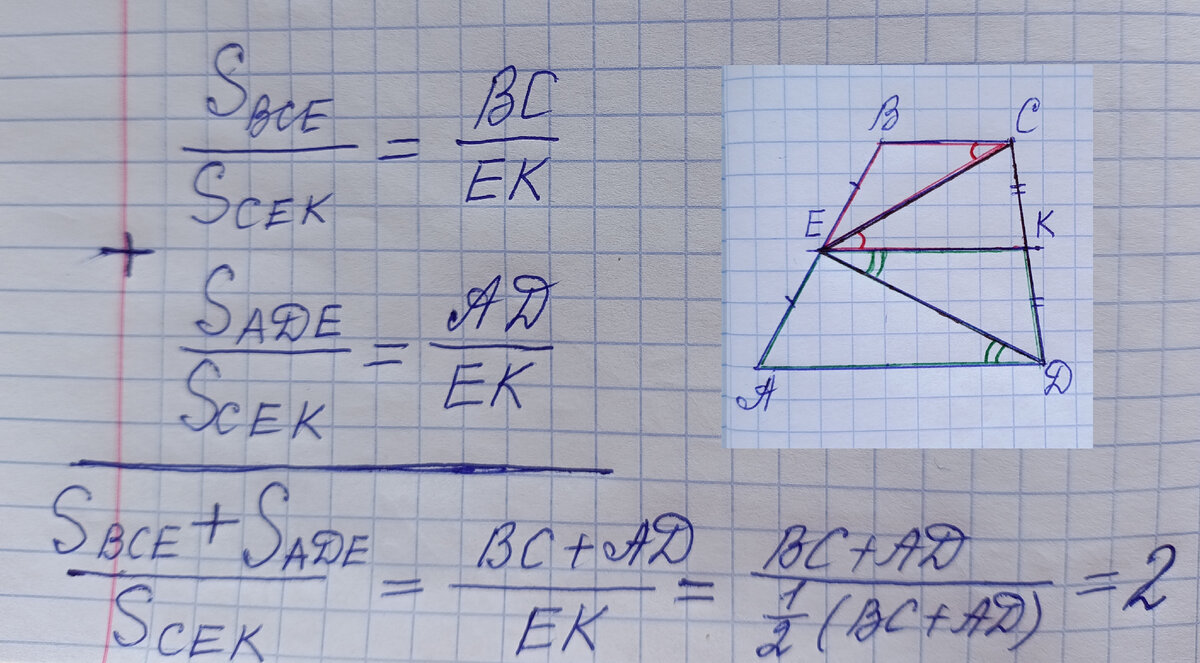 S_BCE / S_CEK = BC / EK
+
S_ADE / S_CEK = AD / EK
S_BCE + S_ADE / S_CEK = BC + AD / EK = BC + AD / 1/2 (BC + AD) = 2
B C
E K
A D